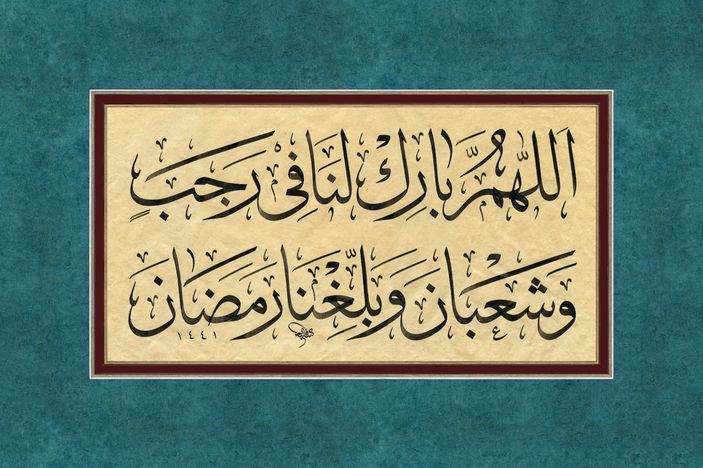 اَللّٰهُمَّ بَارِكْ لَنَا فِي رَجَبٍ
وَشَعْبَانَ وَبَلِّغْنَا رَمَضَانَ
١٤٤١